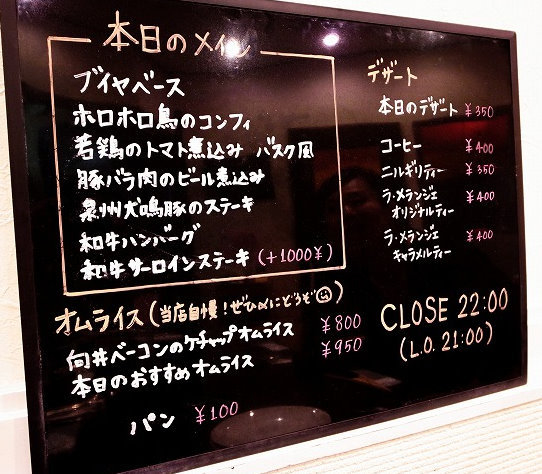 本日のメイン
ブイヤベース
ホロホロ鳥のコンフィ
若鶏のトマト煮込み バスク風
豚バラ肉のビール煮込み
泉州犬鳴豚のステーキ
和牛ハンバーグ
和牛サーロインステーキ (+1000¥)
オムライス (当店自慢!ぜひ〆にどうぞ)
向井ベーコンのケチャップオムライス ¥800
本日のおすすめオムライス ¥950
パン ¥100
デザート
本日のデザート ¥350
コーヒー ¥400
ニルギリティー ¥350
ラ・メランジェ ¥400
オリジナルティー
ラ・メランジェ ¥400
キャラメルティー
CLOSE 22:00
(L.O. 21:00)